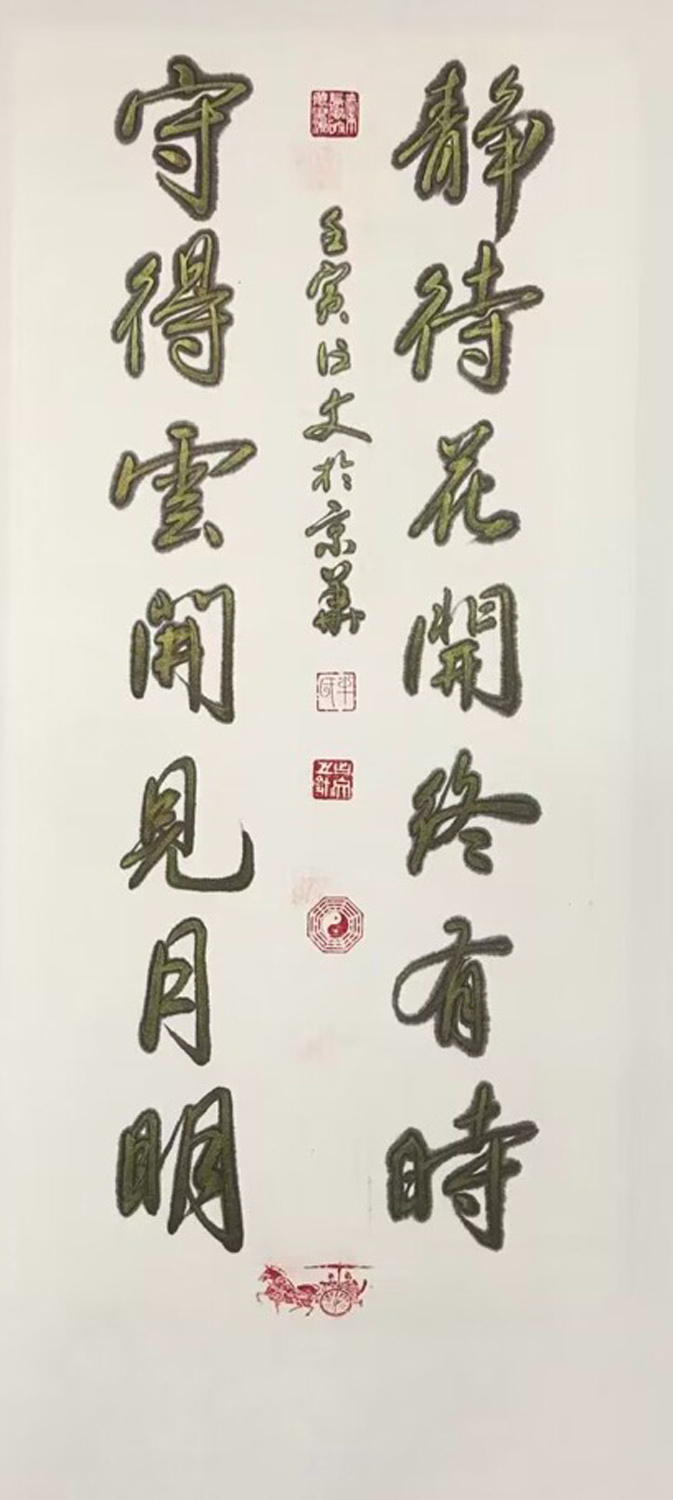 靜待花開終有時
守得雲開見月明
壬寅仕文於京華